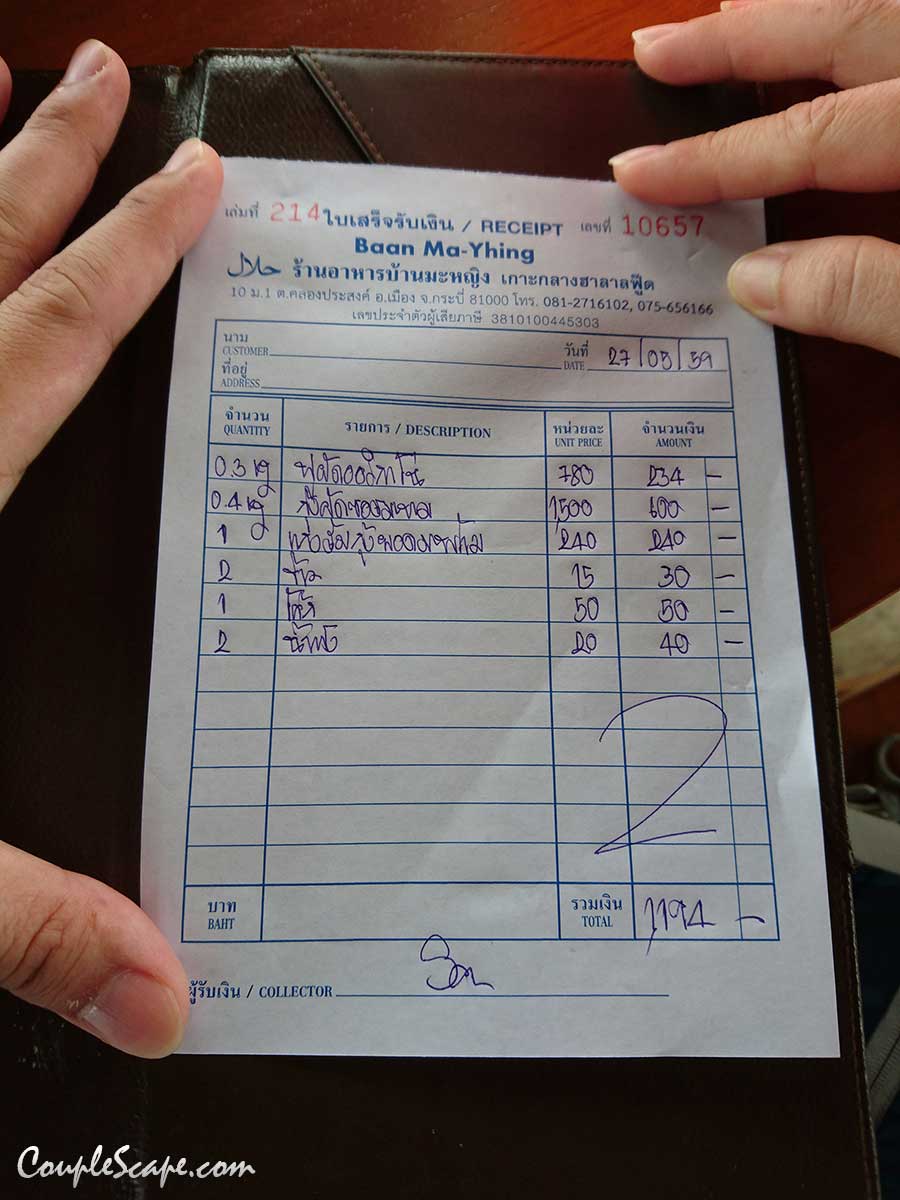 เล่มที่ 214 ใบเสร็จรับเงิน / RECEIPT เลขที่ 10657
Baan Ma-Yhing
حلال ร้านอาหารบ้านมะหญิง เกาะกลางฮาลาลฟู๊ด
10 ม.1 ต.คลองประสงค์ อ.เมือง จ.กระบี่ 81000 โทร. 081-2716102, 075-656166
เลขประจำตัวผู้เสียภาษี 3810100445303
นาม วันที่ 27/05/59
CUSTOMER DATE
ที่อยู่
ADDRESS
จำนวน รายการ / DESCRIPTION หน่วยละ จำนวนเงิน
QUANTITY UNIT PRICE AMOUNT
0.3 kg 780 234 -
0.4 kg 1500 600 -
1 240 240 -
2 15 30 -
1 โค้ก 50 50 -
2 20 40 -
2
บาท รวมเงิน 1,194 -
BAHT TOTAL
ผู้รับเงิน / COLLECTOR
CoupleScape.com